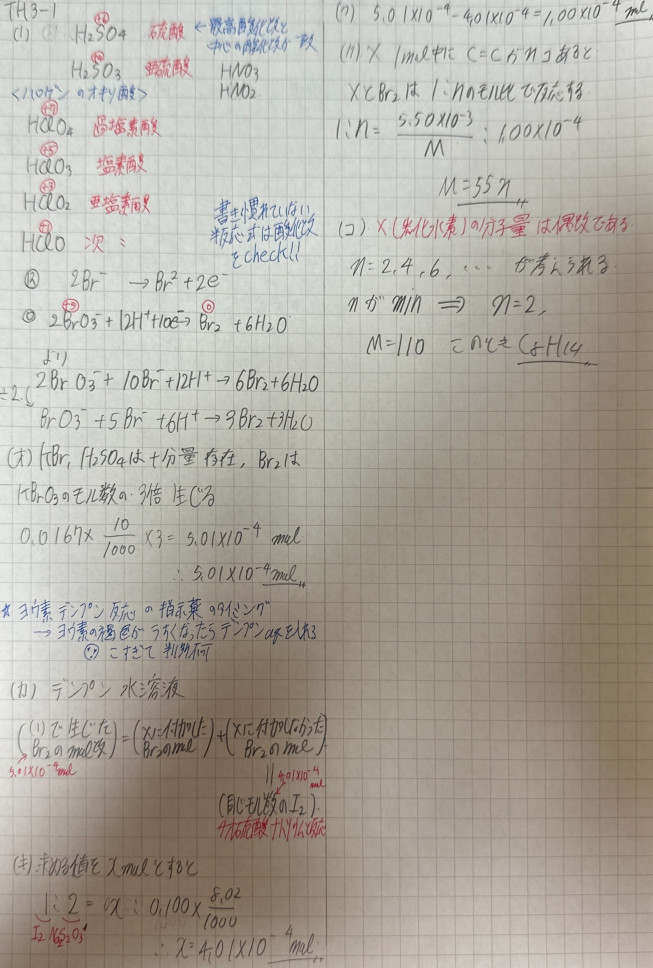 TH3-1
(1) +6 H2SO4 硫酸 ← 最高酸化数と中心の酸化数が一致
+4 H2SO3 亜硫酸 HNO3
<ハロゲンのオキソ酸> HNO2
+7
HClO4 過塩素酸
+5
HClO3 塩素酸
+3
HClO2 亜塩素酸
+1
HClO 次 〃
書き慣れていない
半反応式は酸化数
をcheck!!
Ⓡ 2Br- → Br2 + 2e-
Ⓞ 2BrO3- + 12H+ + 10e- → Br2 + 6H2O
+5 0
より
÷2 2BrO3- + 10Br- + 12H+ → 6Br2 + 6H2O
BrO3- + 5Br- + 6H+ → 3Br2 + 3H2O
(オ) KBr, H2SO4は十分量存在, Br2は
KBrO3のモル数の3倍生じる
0.0167 × 10/1000 × 3 = 5.01×10-4 mol
∴ 5.01×10-4 mol
☆ ヨウ素デンプン反応の指示薬のタイミング
→ ヨウ素の褐色がうすくなったらデンプンaqを入れる
∵ こすぎて判別不可
(カ) デンプン水溶液
((1)で生じたBr2のmol数) = (Xに付加したBr2のmol) + (Xに付加しなかったBr2のmol)
5.01×10-4 mol
|| 4.01×10-4 mol
(同じモル数のI2)
チオ硫酸ナトリウムと反応
(キ) 求める値をx molとすると
1 : 2 = x : 0.100 × 8.02/1000
I2 Na2S2O3
∴ x = 4.01×10-4 mol
(ク) 5.01×10-4 - 4.01×10-4 = 1.00×10-4 mol
(ケ) X 1mol中に C=C がnコあると
XとBr2は1:nのモル比で反応する
1 : n = 5.50×10-3/M : 1.00×10-4
M = 55n
(コ) X(炭化水素)の分子量は偶数である
n = 2, 4, 6, … が考えられる.
nがmin ⇒ n = 2,
M = 110 このとき C8H14